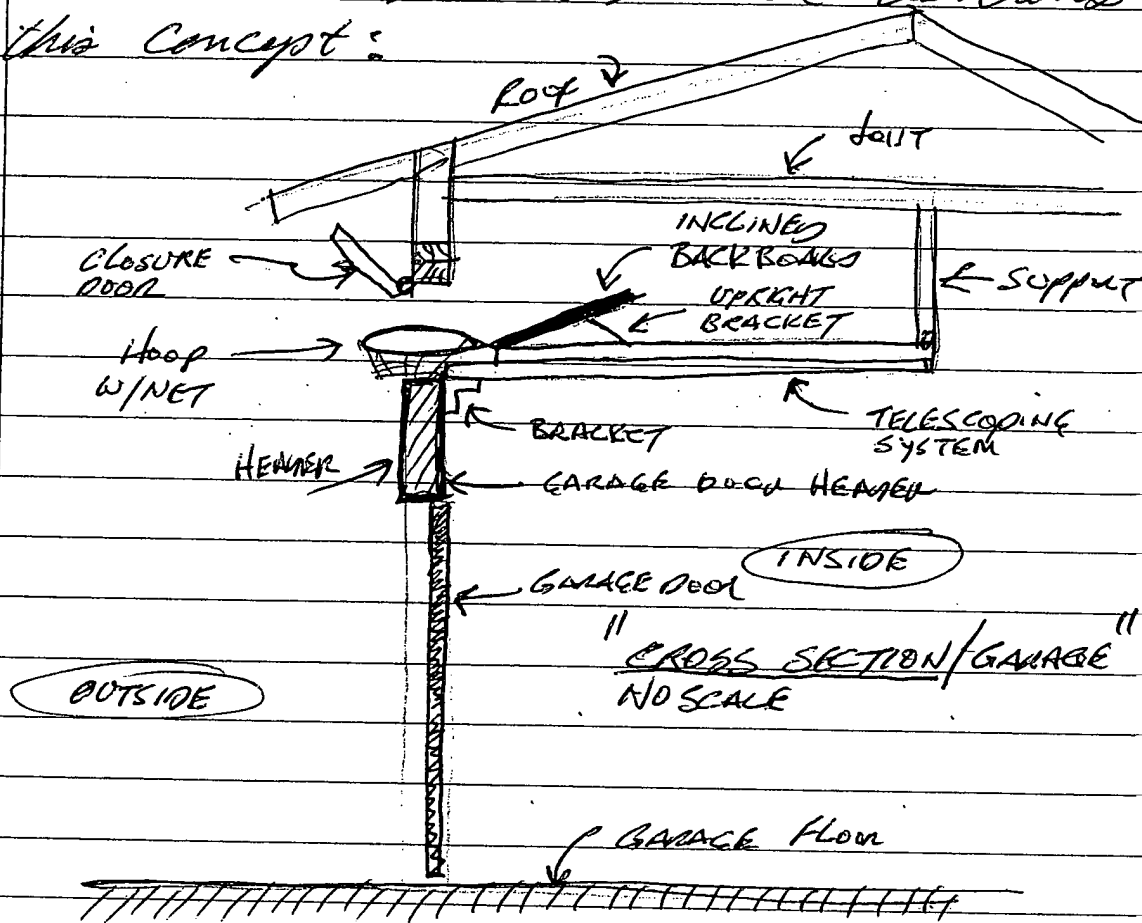 this Concept:
ROOF
JOIST
INCLINED
BACKBOARD
CLOSURE
DOOR
SUPPORT
UPRIGHT
BRACKET
HOOP
W/NET
TELESCOPING
SYSTEM
BRACKET
HEADER
GARAGE DOOR HEADER
INSIDE
GARAGE DOOR
"CROSS SECTION/GARAGE"
NO SCALE
OUTSIDE
GARAGE FLOOR